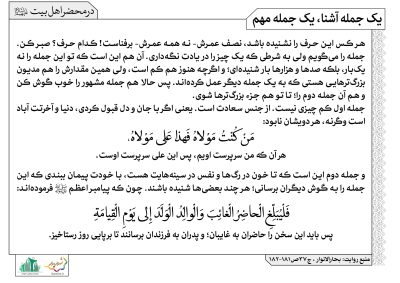 در محضر اهل بیت
یک جمله آشنا، یک جمله مهم
هر کس این حرف را نشنیده باشد، نصف عمرش- نه همه عمرش- برفناست! کدام حرف؟ صبر کن.
جمله را می‌گویم ولی به شرطی که یک چیز را در یادت نگه‌داری. آن هم این است که تو این جمله را نه
یک‌بار، بلکه صدها و هزارها بار شنیده‌ای؛ و اگرچه هنوز هم کم است، ولی همین مقدارش را هم مدیون
بزرگ‌ترهایی هستی که به یک جمله دیگر عمل کرده‌اند. پس حالا هم جمله مشهور را خوب گوش کن
و هم آن جمله دوم را؛ تا تو هم جزء بزرگ‌ترها شوی.
جمله اول کم چیزی نیست. از جنس سعادت است. یعنی اگر با جان و دل قبول کردی، دنیا و آخرتت آباد
است وگرنه، هر دویشان نابود:
مَن كُنْتُ مَوْلاهُ فَهذا عَلي مَوْلاهُ.
هر آن که من سرپرست اویم، پس این علی سرپرست اوست.
و جمله دوم این است که تا خون در رگ‌ها و نفس در سینه‌هایت هست، با خودت پیمان ببندی که این
جمله را به گوش دیگران برسانی؛ هر چند بعضی‌ها شنیده باشند. چون که پیامبر اعظم ﷺ فرموده‌اند:
فَلْيُبَلِّغِ الْحاضِرُ الْغائِبَ وَالْوالِدُ الْوَلَدَ إِلى يَوْمِ الْقِيامَةِ
پس باید این سخن را حاضران به غایبان؛ و پدران به فرزندان برسانند تا برپایی روز رستاخیز.
منبع روایت: بحارالانوار ، ج۳۷ ص۱۸۱-۱۸۲